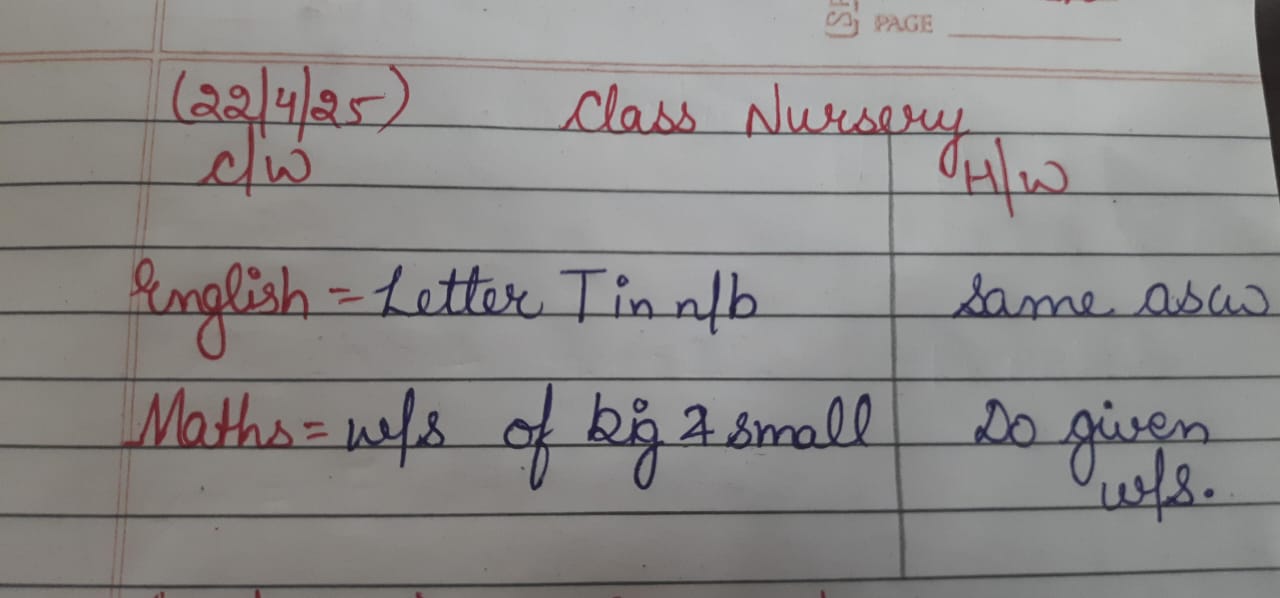 PAGE
(22/4/25) Class Nursery
C/W H/W
English = Letter T in n/b Same as cw
Maths = w/s of big & small Do given
w/s.